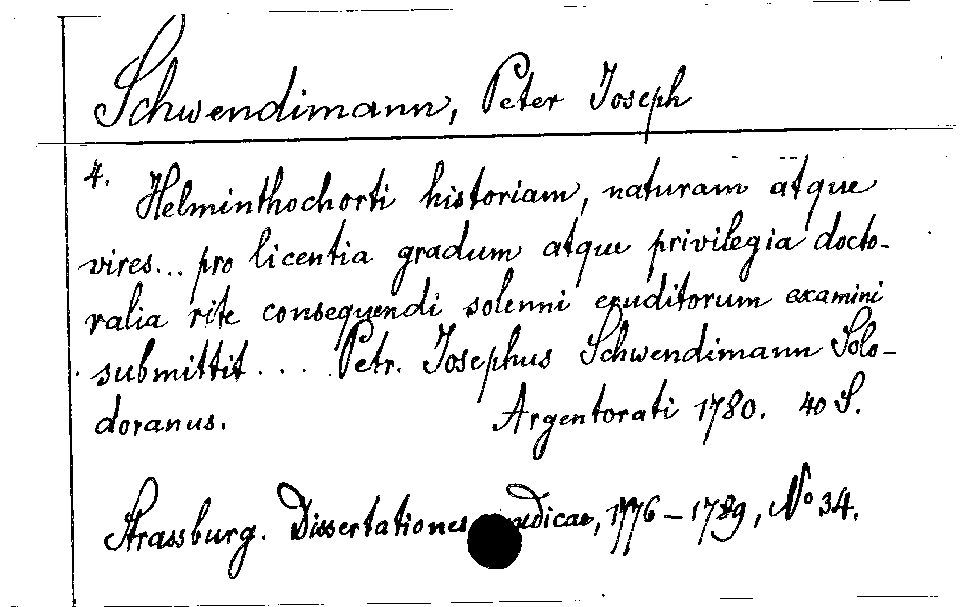 Schwendimann, Peter Joseph
4. Helminthochorti historiam, naturam atque
vires... pro licentia gradum atque privilegia docto-
ralia rite consequendi solenni eruditorum examini
submittit.... Petr. Josephus Schwendimann Solo-
doranus. Argentorati 1780. 40 S.
Strassburg. Dissertationes medicae, 1776-1789, No 34.